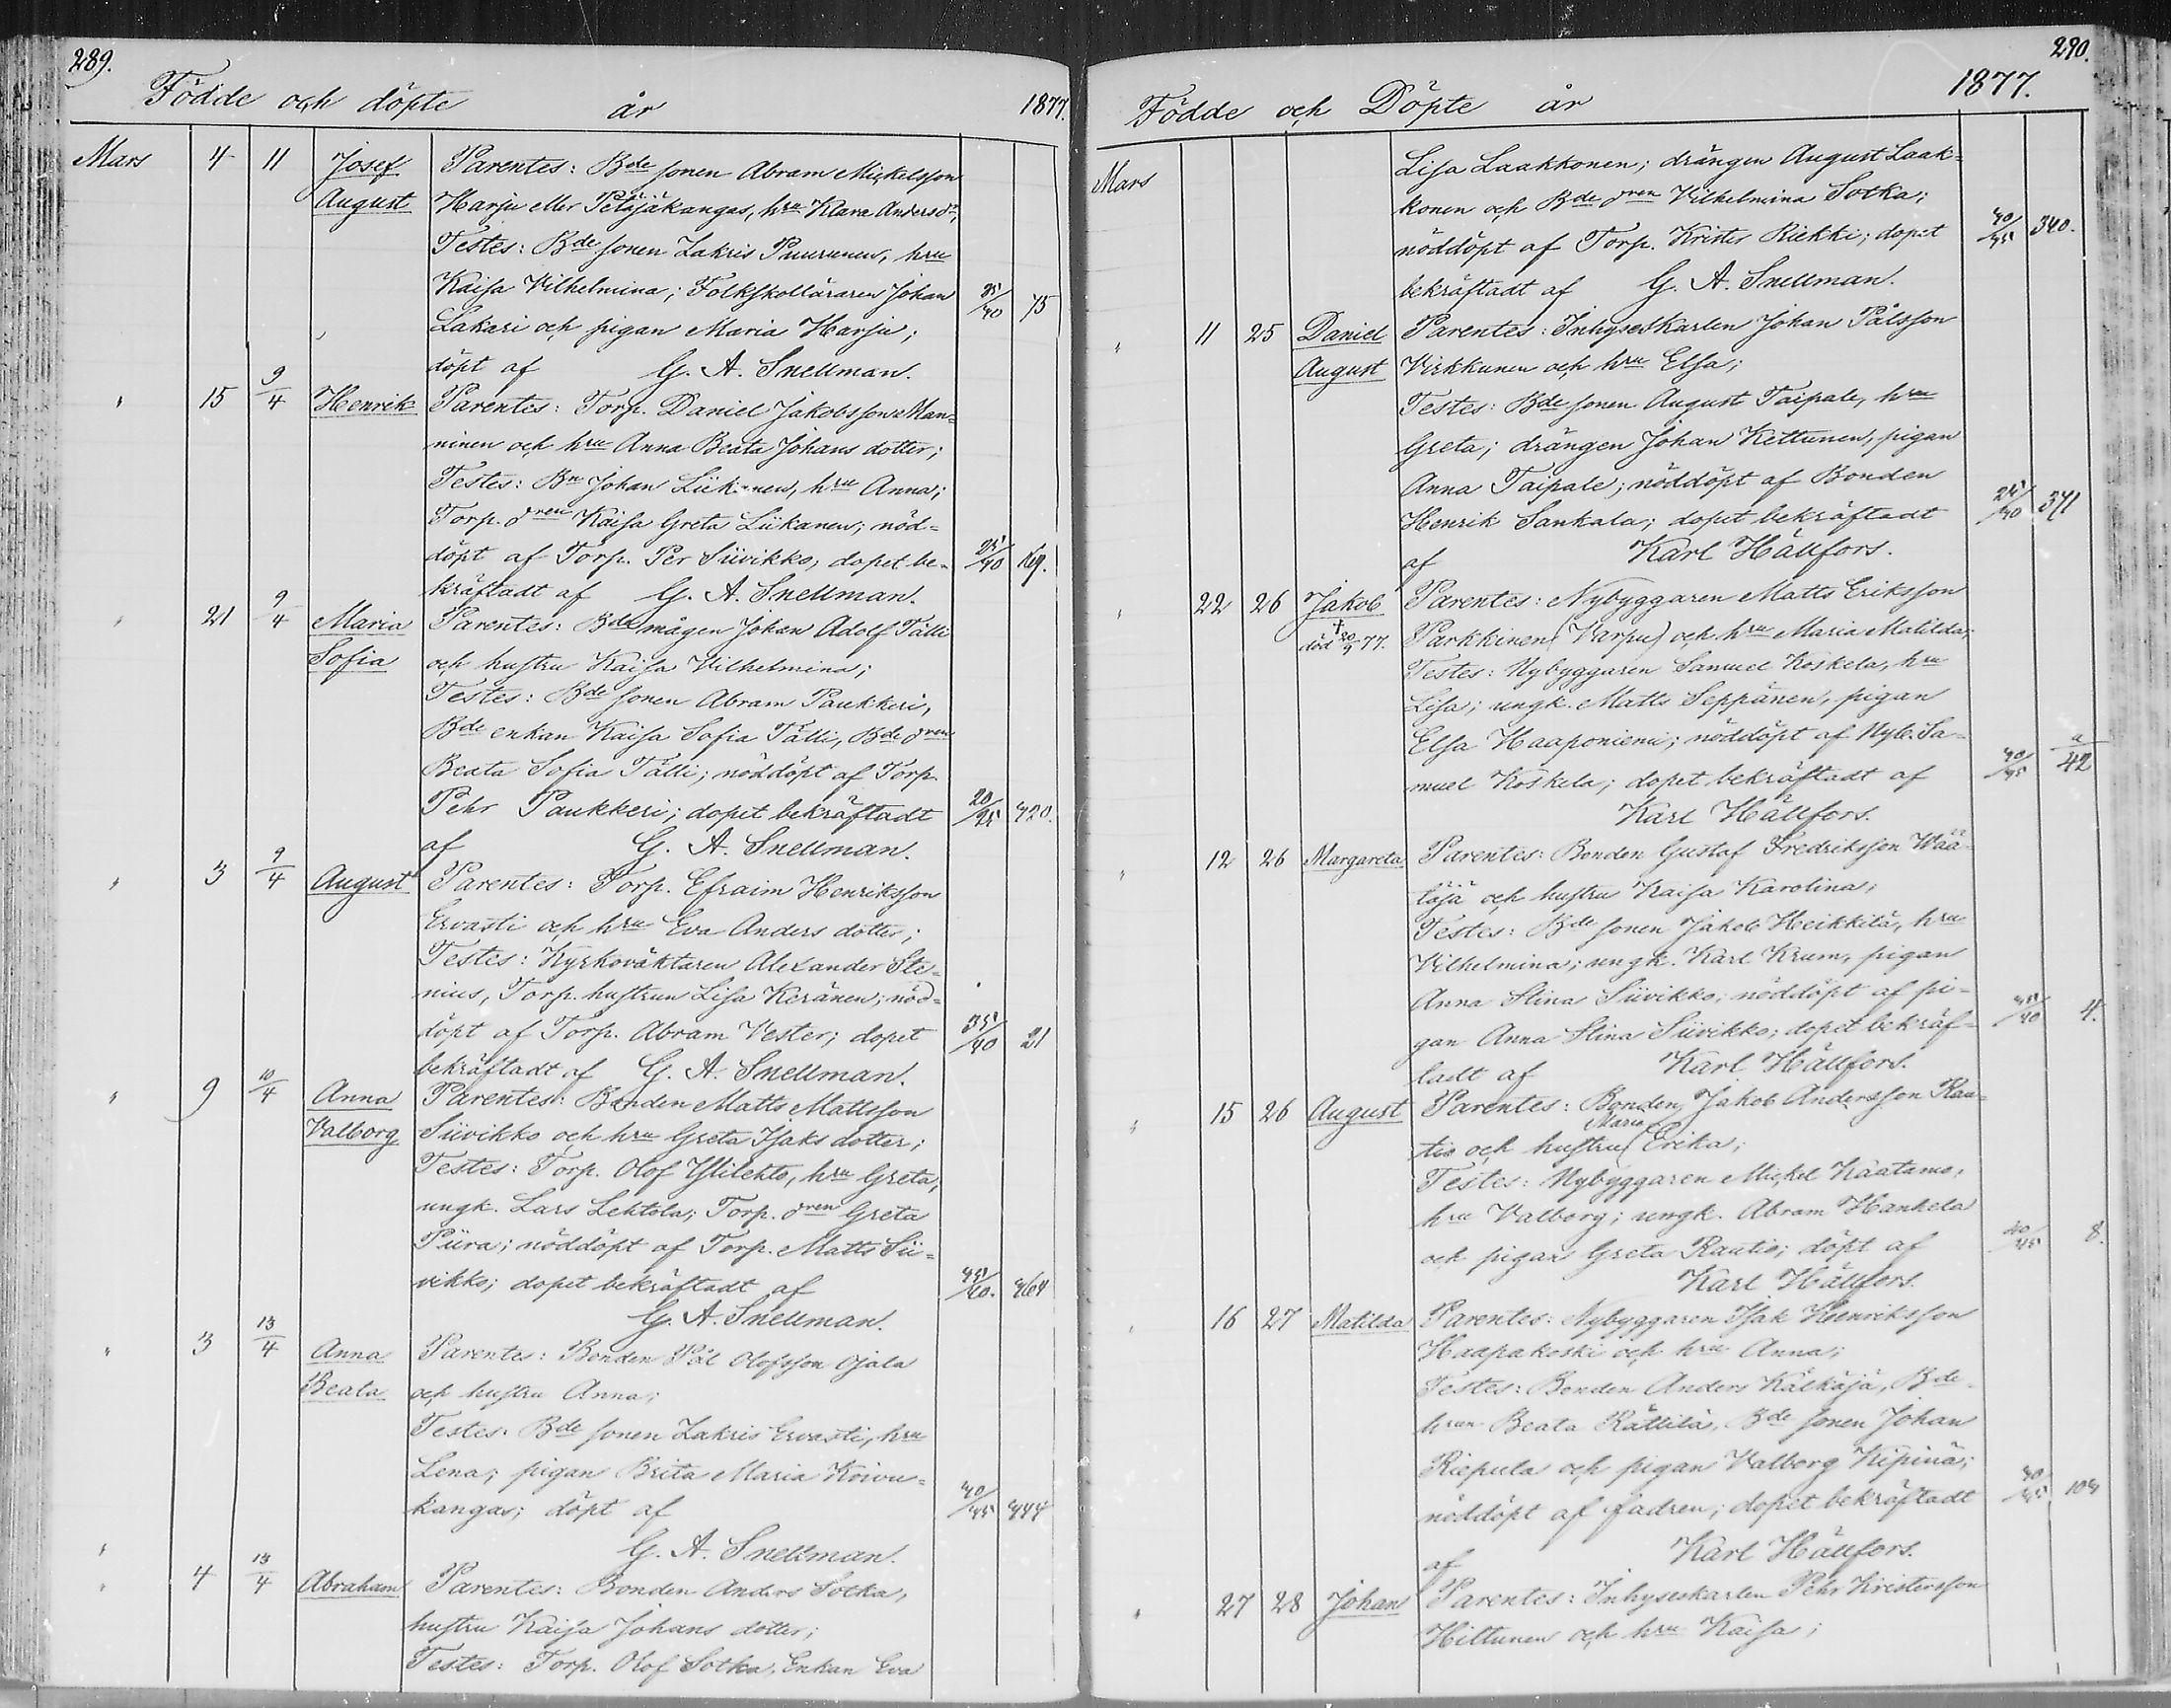 289.
Födde och döpte år 1877.
Mars 4 11 Josef Parentes: Bde sonen Abram Mickelsson
August Harju eller Petäjäkangas, hru Klara Andersdr,
Testes: Bde sonen Zakris Puurunen, hru
Kaisa Vilhelmina; Folkskolläraren Johan 35/40 75
Lakari och pigan Maria Harju;
döpt af G. A. Snellman.
" 15 9/4 Henrik Parentes: Torp. Daniel Jakobsson Man=
ninen och hru Anna Beata Johans dotter;
Testes: Bn Johan Liikanen, hru Anna;
Torp. dren Kaisa Greta Liikanen; nöd=
döpt af Torp. Per Siivikko, dopet be=
kräftadt af G. A. Snellman.
" 21 9/4 Maria Parentes: Bde mågen Johan Adolf Tälli
Sofia och hustru Kaisa Vilhelmina;
Testes: Bde sonen Abram Paukkeri,
Bde enkan Kaisa Sofia Tälli, Bde dren
Beata Sofia Tälli; nöddöpt af Torp.
Pehr Paukkeri; dopet bekräftadt 20/25 420.
af G. A. Snellman.
" 3 9/4 August Parentes: Torp. Efraim Henriksson
Ervasti och hru Eva Anders dotter;
Testes: Kyrkoväktaren Alexander Ste=
nius, Torp. hustrun Lisa Keränen; nöd=
döpt af Torp. Abram Vester; dopet 35/40 21
bekräftadt af G. A. Snellman.
" 9 10/4 Anna Parentes: Bonden Matts Mattsson
Valborg Siivikko och hru Greta Isaks dotter;
Testes: Torp. Olof Ylilehto, hru Greta,
ungk. Lars Lehtola; Torp. dren Greta
Piira; nöddöpt af Torp. Matts Sii=
vikko; dopet bekräftadt af 464
G. A. Snellman.
" 3 13/4 Anna Parentes: Bonden Pål Olofsson Ojala
Beata och hustru Anna;
Testes: Bde sonen Zakris Ervasti, hru
Lena; pigan Brita Maria Koivu=
kangas; döpt af 40/45 444
G. A. Snellman.
" 4 13/4 Abraham Parentes: Bonden Anders Sotka,
hustru Kaisa Johans dotter;
Testes: Torp. Olof Sotka, Enkan Eva
290.
Födde och Döpte år 1877.
Mars Lisa Laakkonen; drängen August Laak=
konen och Bde dren Vilhelmina Sotka;
nöddöpt af Torp. Krister Riekki; dopet 40/45 340.
bekräftadt af G. A. Snellman.
" 11 25 Daniel Parentes: Inhyseskarlen Johan Pålsson
August Virkkunen och hru Elsa;
Testes: Bde sonen August Taipale, hru
Greta; drängen Johan Kettunen, pigan
Anna Taipale; nöddöpt af Bonden
Henrik Sankala; dopet bekräftadt
af Karl Hällfors.
" 22 26 Jakob Parentes: Nybyggaren Matts Eriksson
död 20/9 77. Parkkinen (Varpu) och hru Maria Matilda;
Testes: Nybyggaren Samuel Koskela, hru
Lisa; ungk. Matts Seppänen, pigan
Elsa Haaponiemi; nöddöpt af Nyb. Sa=
muel Koskela; dopet bekräftadt af 40/45 42
Karl Hällfors.
" 12 26 Margareta Parentes: Bonden Gustaf Fredriksson Wää=
täjä och hustru Kaisa Karolina;
Testes: Bde sonen Jakob Heikkilä, hru
Vilhelmina; ungk. Karl Krum, pigan
Anna Stina Siivikko; nöddöpt af pi=
gan Anna Stina Siivikko; dopet bekräf= 4.
tadt af Karl Hällfors.
" 15 26 August Parentes: Bonden Jakob Andersson Rau=
tio och hustru Maria Erika;
Testes: Nybyggaren Mickel Kaatamo,
hru Valborg; ungk. Abram Hankela
och pigan Greta Rautio; döpt af 40/45 8.
Karl Hällfors.
" 16 27 Matilda Parentes: Nybyggaren Isak Henriksson
Haapakoski och hru Anna;
Testes: Bonden Anders Kälkäjä, Bde
hrun Beata Rättilä, Bde sonen Johan
Riepula och pigan Valborg Kipinä;
nöddöpt af fadren; dopet bekräftadt 40/45
af Karl Hällfors.
" 27 28 Johan Parentes: Inhyseskarlen Pehr Kristersson
Hiltunen och hru Kaisa;